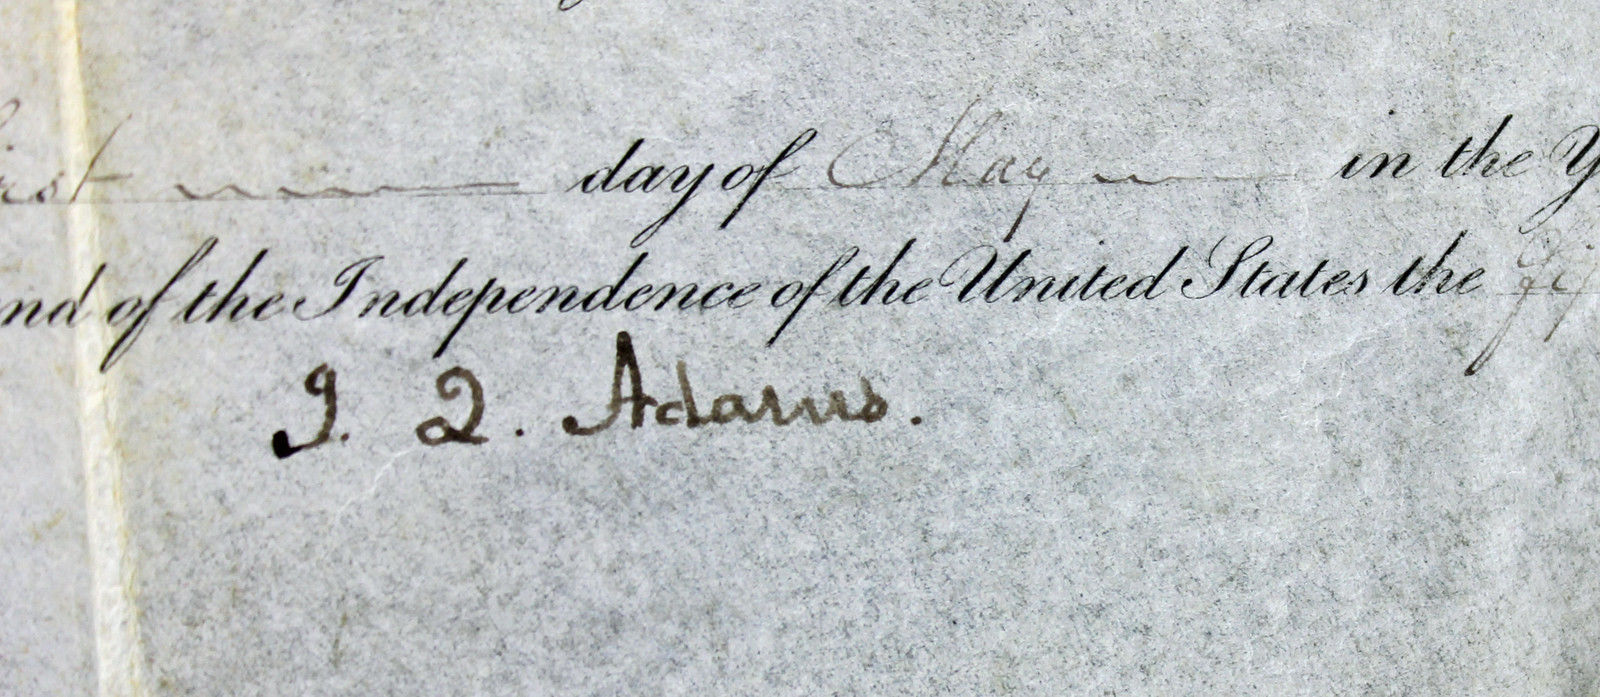 day of May in the Y
nd of the Independence of the United States the
J. Q. Adams.